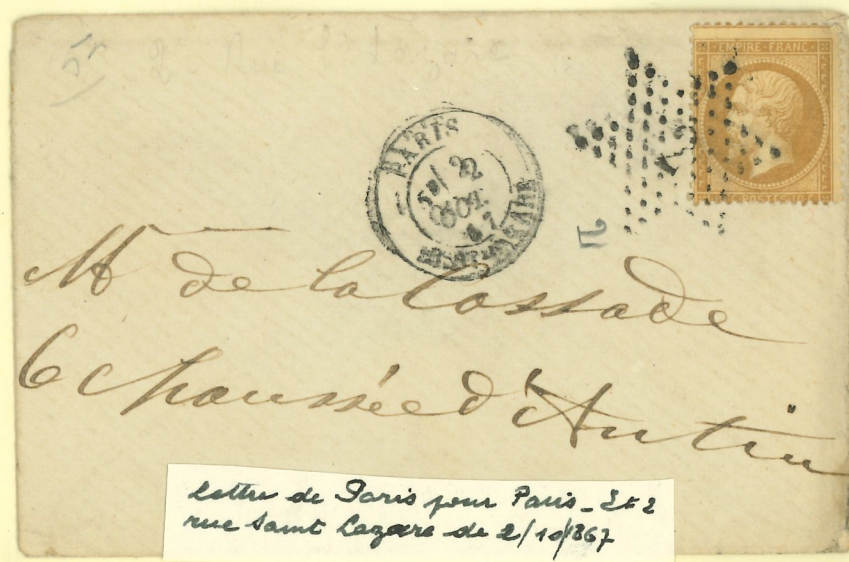 2 - Rue St Lazare
EMPIRE FRANC
POSTES
2
PARIS
5E/ 2
OCT.
67
R.ST-LAZARE
Mr de la Cossade
6 Chaussée d'Antin
lettre de Paris pour Paris - Et 2
rue Saint Lazare de 2/10/1867